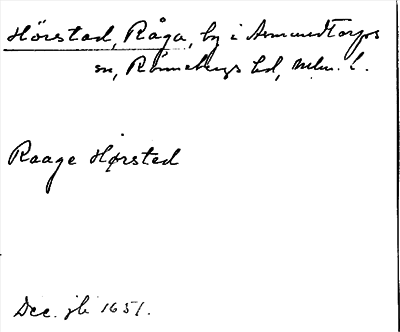 Hörstad, Råga, by i Asmundtorps
sn, Rönnebergs hd, Mlm. l.
Raage Hørsted
Dec. jb 1651.